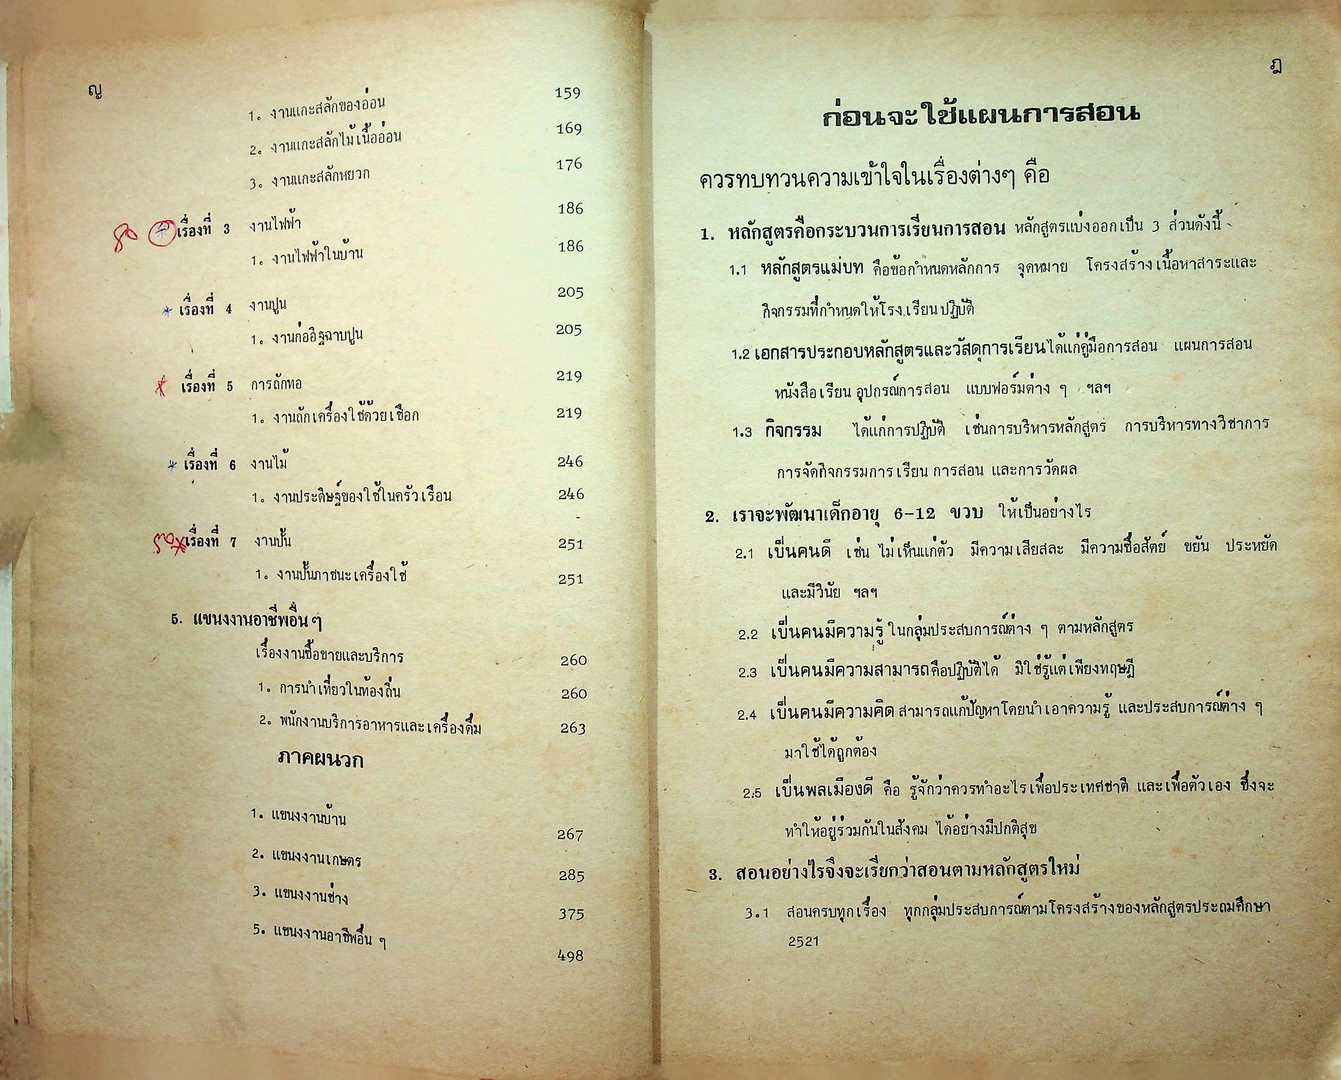 ญ
1. งานแกะสลักของอ่อน 159
2. งานแกะสลักไม้เนื้ออ่อน 169
3. งานแกะสลักหยวก 176
เรื่องที่ 3 งานไฟฟ้า 186
1. งานไฟฟ้าในบ้าน 186
เรื่องที่ 4 งานปูน 205
1. งานก่ออิฐฉาบปูน 205
เรื่องที่ 5 การถักทอ 219
1. งานถักเครื่องใช้ด้วยเชือก 219
เรื่องที่ 6 งานไม้ 246
1. งานประดิษฐ์ของใช้ในครัวเรือน 246
เรื่องที่ 7 งานปั้น 251
1. งานปั้นภาชนะเครื่องใช้ 251
5. แขนงงานอาชีพอื่นๆ
เรื่องงานซื้อขายและบริการ 260
1. การนำเที่ยวในท้องถิ่น 260
2. พนักงานบริการอาหารและเครื่องดื่ม 263
ภาคผนวก
1. แขนงงานบ้าน 267
2. แขนงงานเกษตร 285
3. แขนงงานช่าง 375
5. แขนงงานอาชีพอื่น ๆ 498
ฎ
ก่อนจะใช้แผนการสอน
ควรทบทวนความเข้าใจในเรื่องต่างๆ คือ
1. หลักสูตรคือกระบวนการเรียนการสอน หลักสูตรแบ่งออกเป็น 3 ส่วนดังนี้
1.1 หลักสูตรแม่บท คือข้อกำหนดหลักการ จุดหมาย โครงสร้างเนื้อหาสาระและ
กิจกรรมที่กำหนดให้โรงเรียนปฏิบัติ
1.2 เอกสารประกอบหลักสูตรและวัสดุการเรียนได้แก่คู่มือการสอน แผนการสอน
หนังสือเรียน อุปกรณ์การสอน แบบฟอร์มต่าง ๆ ฯลฯ
1.3 กิจกรรม ได้แก่การปฏิบัติ เช่นการบริหารหลักสูตร การบริหารทางวิชาการ
การจัดกิจกรรมการเรียนการสอน และการวัดผล
2. เราจะพัฒนาเด็กอายุ 6-12 ขวบ ให้เป็นอย่างไร
2.1 เป็นคนดี เช่น ไม่เห็นแก่ตัว มีความเสียสละ มีความซื่อสัตย์ ขยัน ประหยัด
และมีวินัย ฯลฯ
2.2 เป็นคนมีความรู้ ในกลุ่มประสบการณ์ต่าง ๆ ตามหลักสูตร
2.3 เป็นคนมีความสามารถคือปฏิบัติได้ มิใช่รู้แต่เพียงทฤษฎี
2.4 เป็นคนมีความคิด สามารถแก้ปัญหาโดยนำเอาความรู้ และประสบการณ์ต่าง ๆ
มาใช้ได้ถูกต้อง
2.5 เป็นพลเมืองดี คือ รู้จักว่าควรทำอะไรเพื่อประเทศชาติ และเพื่อตัวเอง ซึ่งจะ
ทำให้อยู่ร่วมกันในสังคม ได้อย่างมีปกติสุข
3. สอนอย่างไรจึงจะเรียกว่าสอนตามหลักสูตรใหม่
3.1 สอนครบทุกเรื่อง ทุกกลุ่มประสบการณ์ตามโครงสร้างของหลักสูตรประถมศึกษา
2521